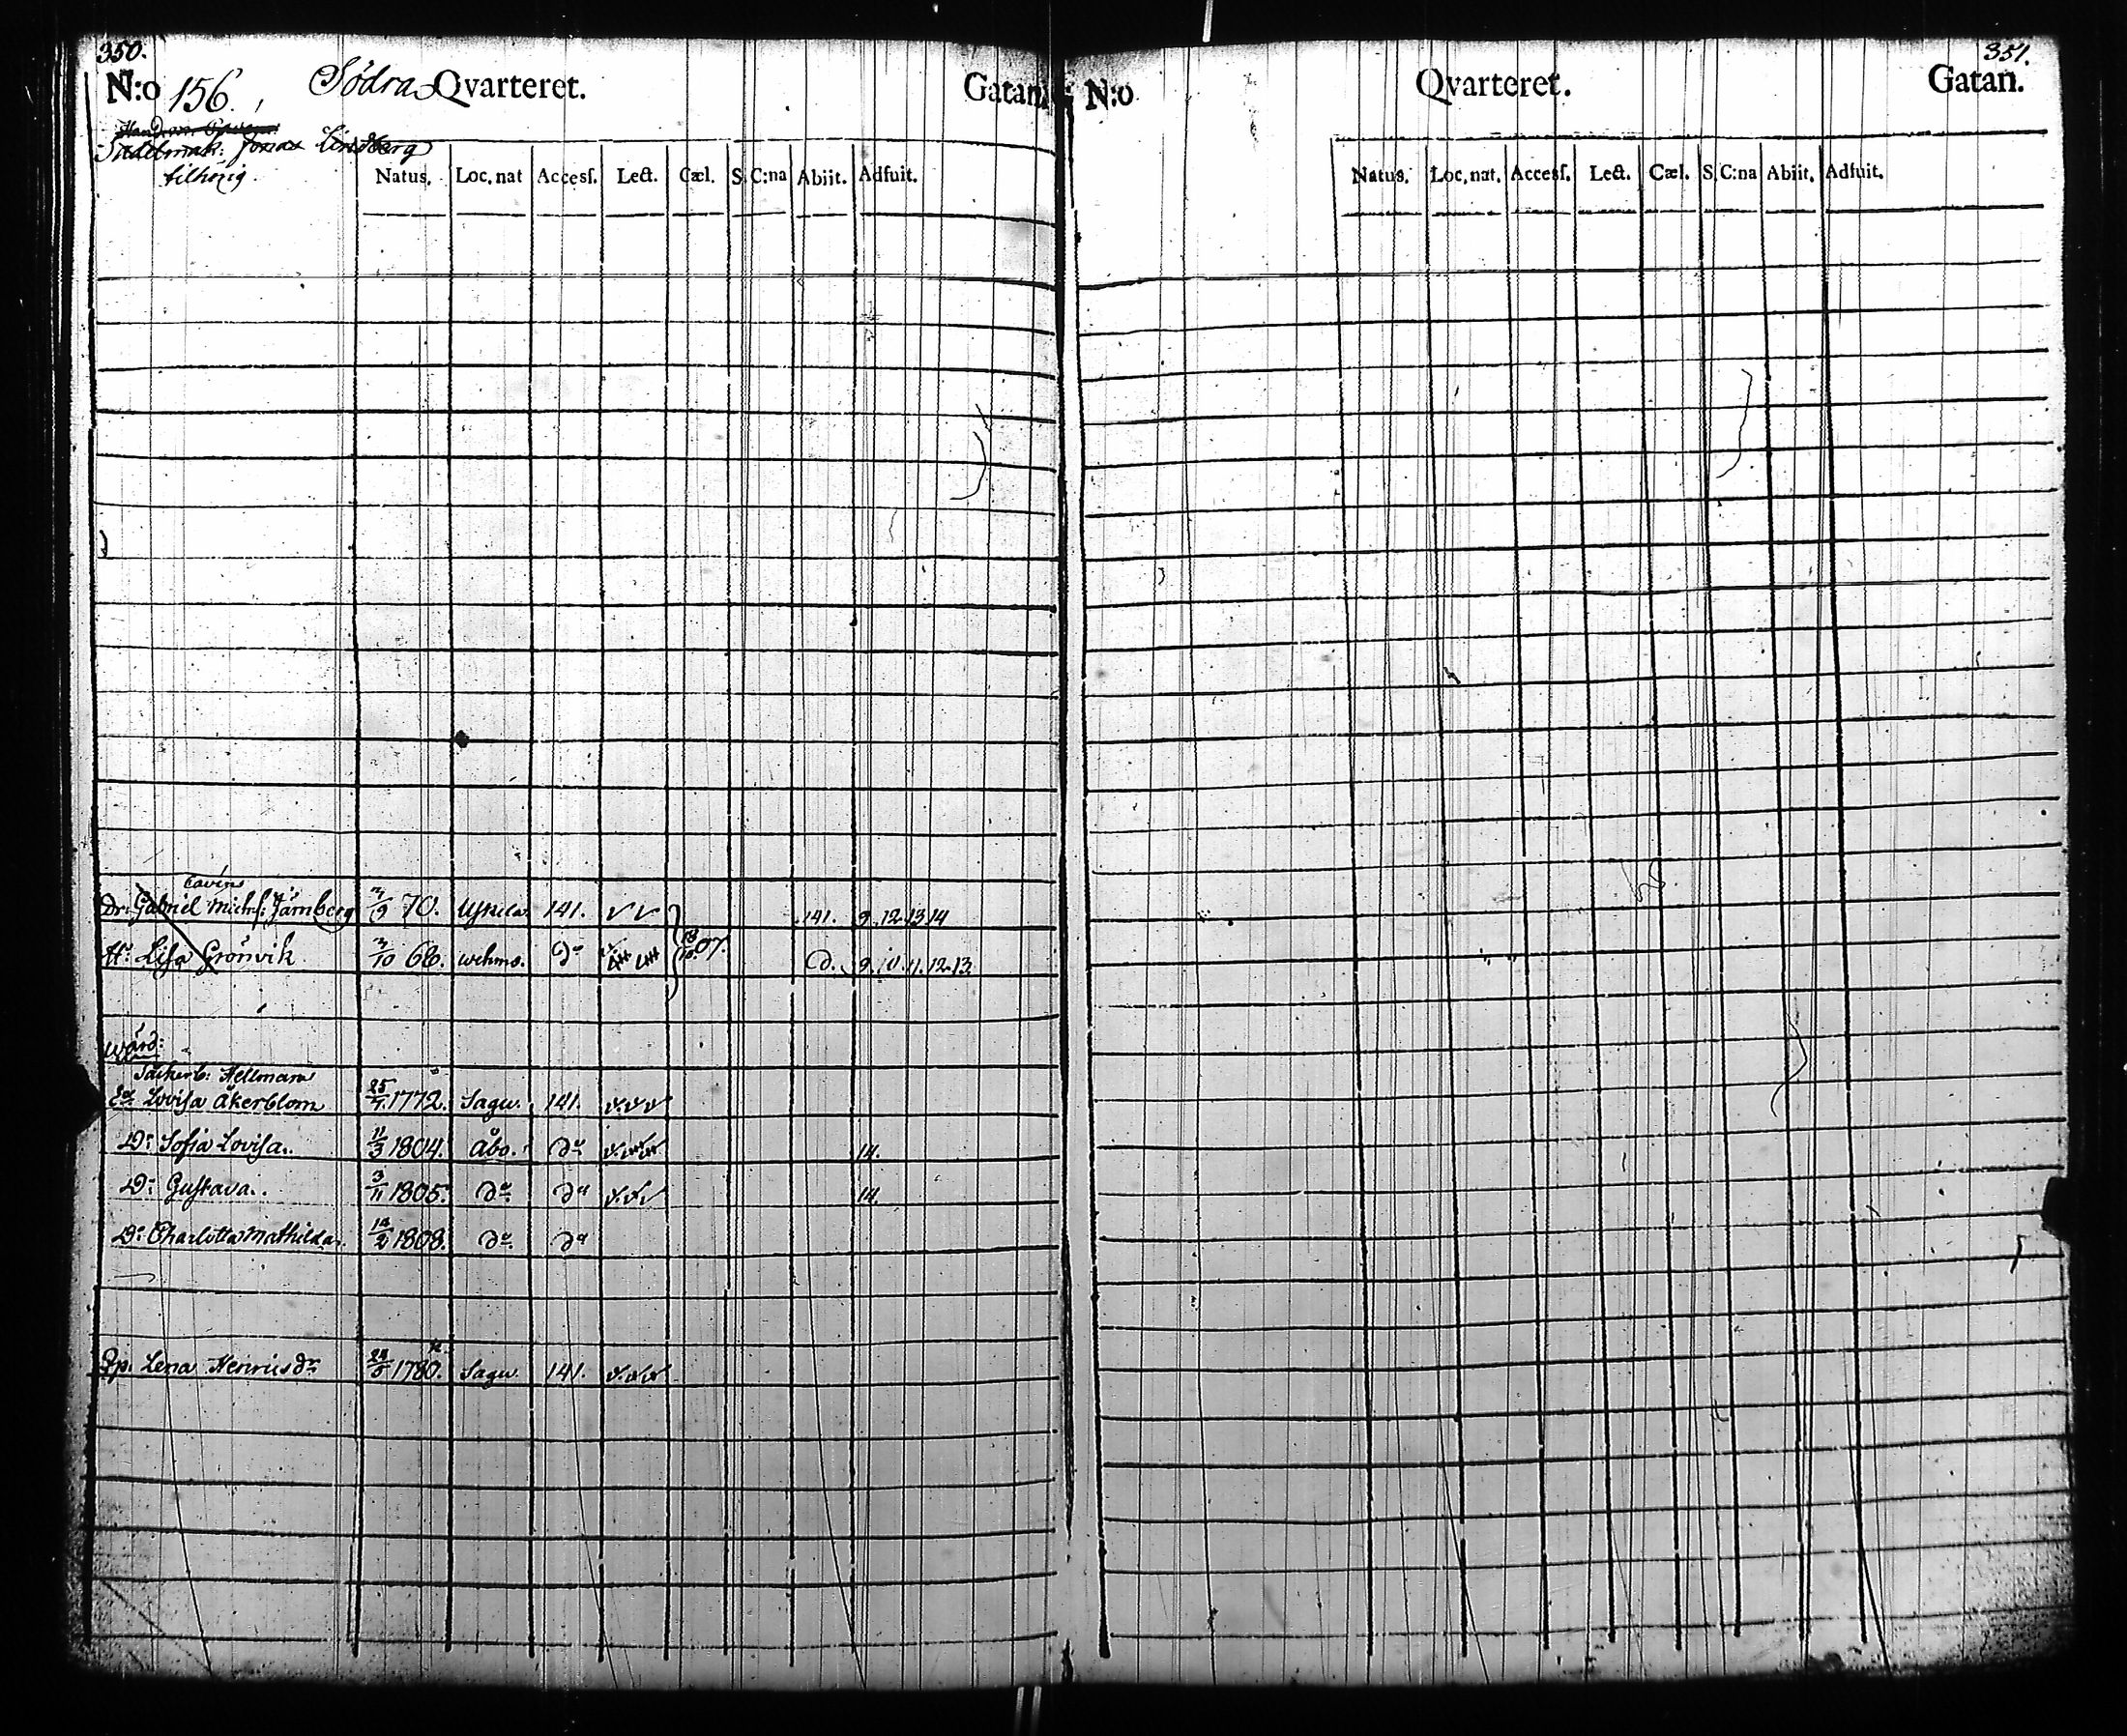 350.
N:o 156. Södra Qvarteret. Gatan.
Sadelmak: Jonas Lindberg
tilhörig.
Natus. Loc. nat Access. Lect. Cæl. S. C:na Abiit. Adfuit.
Dr: Gabriel Michelss: Jämberg 70. 141. 141. 9. 12. 13. 14
H: Lisa Grönvik 3/10 66. wehmo. do 07. D. 9. 10. 11. 12. 13.
wärd:
Hellmans
Ea Lovisa Åkerblom 25/7. 1772. Sagu. 141.
Dr: Sofia Lovisa. 11/3 1804. Åbo. do 14.
Dr: Gustava. 3/11 1805. do do 14.
Dr: Charlotta Mathilda. 14/2 1808. do do
Pp. Lena Henricsdr 1780. Sagu. 141.
351.
N:o Qvarteret. Gatan.
Natus. Loc. nat. Access. Lect. Cæl. S. C:na Abiit. Adfuit.